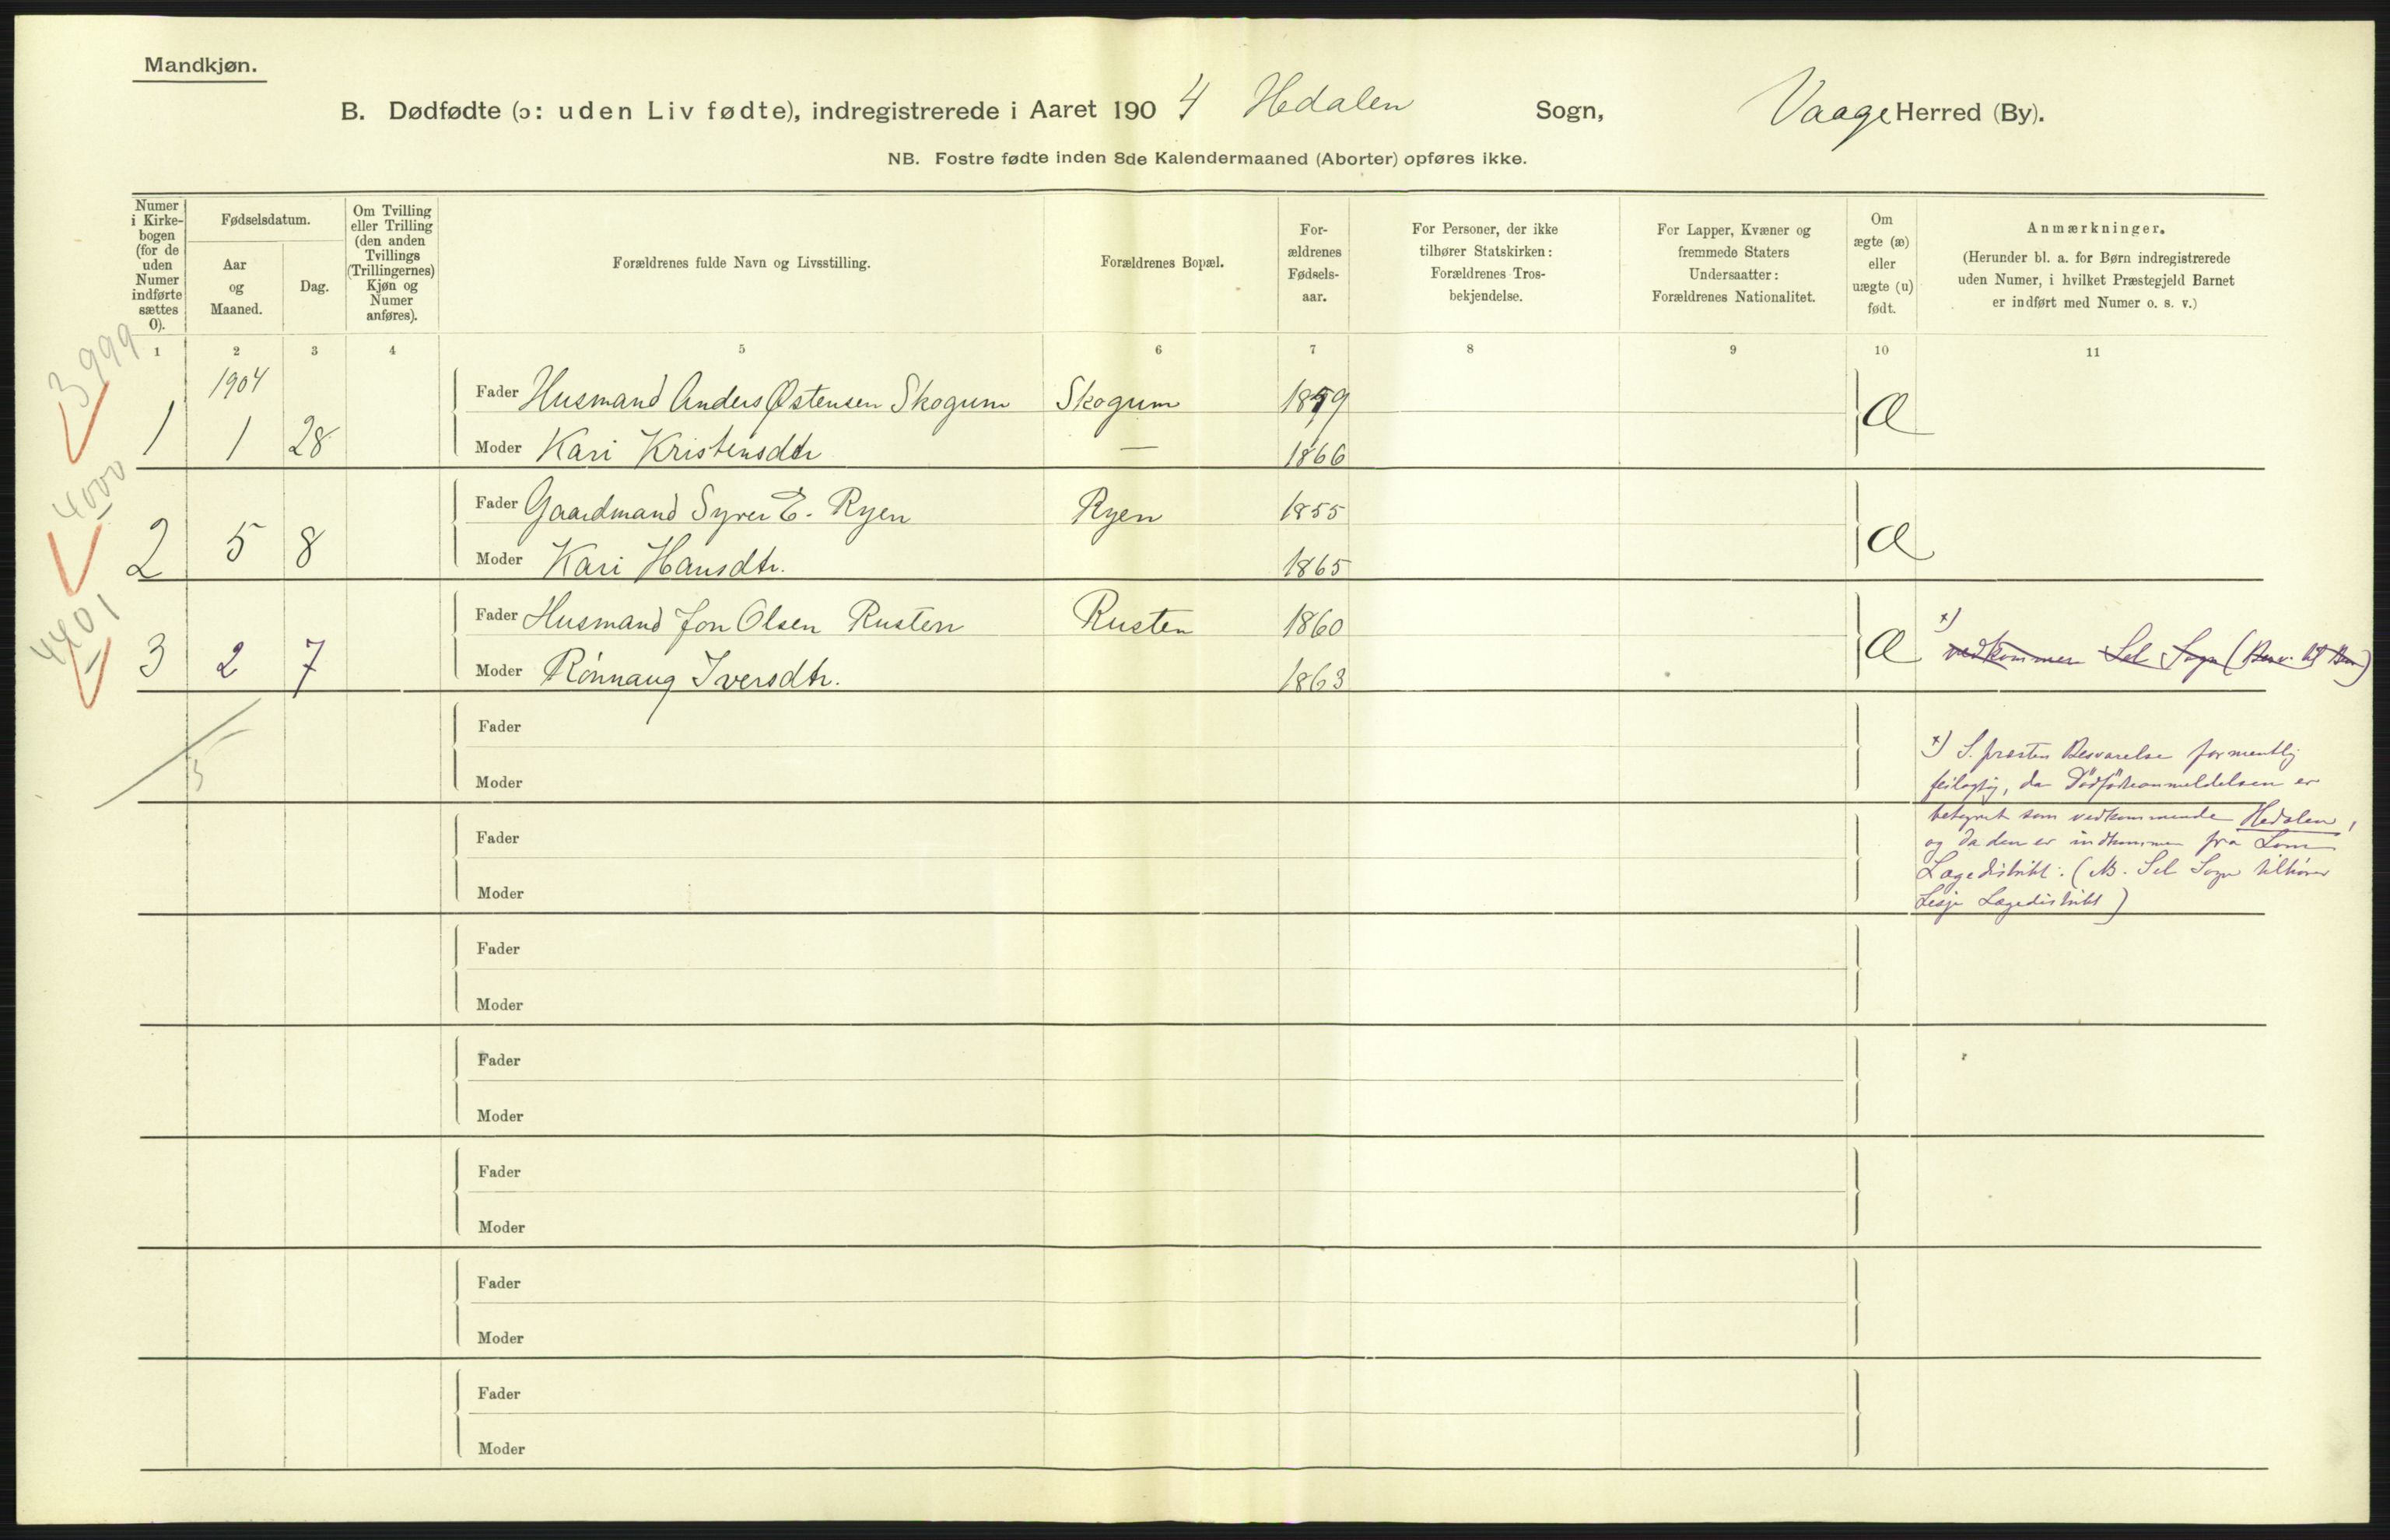 Mandkjøn.
B. Dødfødte (ɔ: uden Liv fødte), indregistrerede i Aaret 1904 Hedalen Sogn, Vaage Herred (By).
NB. Fostre fødte inden 8de Kalendermaaned (Aborter) opføres ikke.
Numer i Kirke-bogen (for de uden Numer indførte sættes 0).
Fødselsdatum.
Aar og Maaned.
Dag.
Om Tvilling eller Trilling (den anden Tvillings (Trillingernes) Kjøn og Numer anføres).
Forældrenes fulde Navn og Livsstilling.
Forældrenes Bopæl.
For-ældrenes Fødsels-aar.
For Personer, der ikke tilhører Statskirken: Forældrenes Tros-bekjendelse.
For Lapper, Kvæner og fremmede Staters Undersaatter: Forældrenes Nationalitet.
Om ægte (æ) eller uægte (u) født.
Anmærkninger.
(Herunder bl. a. for Børn indregistrerede uden Numer, i hvilket Præstegjeld Barnet er indført med Numer o. s. v.)
1 2 3 4 5 6 7 8 9 10 11
3999
1904
Fader Husmand Anders Østensen Skogum Skogum 1879
1 1 28 Moder Kari Kristensdtr — 1866 Æ
4000
Fader Gaardmand Syver E. Ryen Ryen 1855
2 5 8 Moder Kari Hansdtr. 1865 Æ
4401
Fader Husmand Jon Olsen Rusten Rusten 1860
3 2 7 Moder Rönnaug Iversdtr. 1863 Æ
x) vedkommer Sel Sogn
Fader
Moder
x) S. præsten Besvarelse formentlig
feilagtig, da Dödfödtanmeldelsen er
betegnet som vedkommende Hedalen,
og da den er indkommen fra Lom
Lægedistrikt. (NB. Sel Sogn tilhører
Lesje Lægedistrikt)
Fader
Moder
Fader
Moder
Fader
Moder
Fader
Moder
Fader
Moder
Fader
Moder